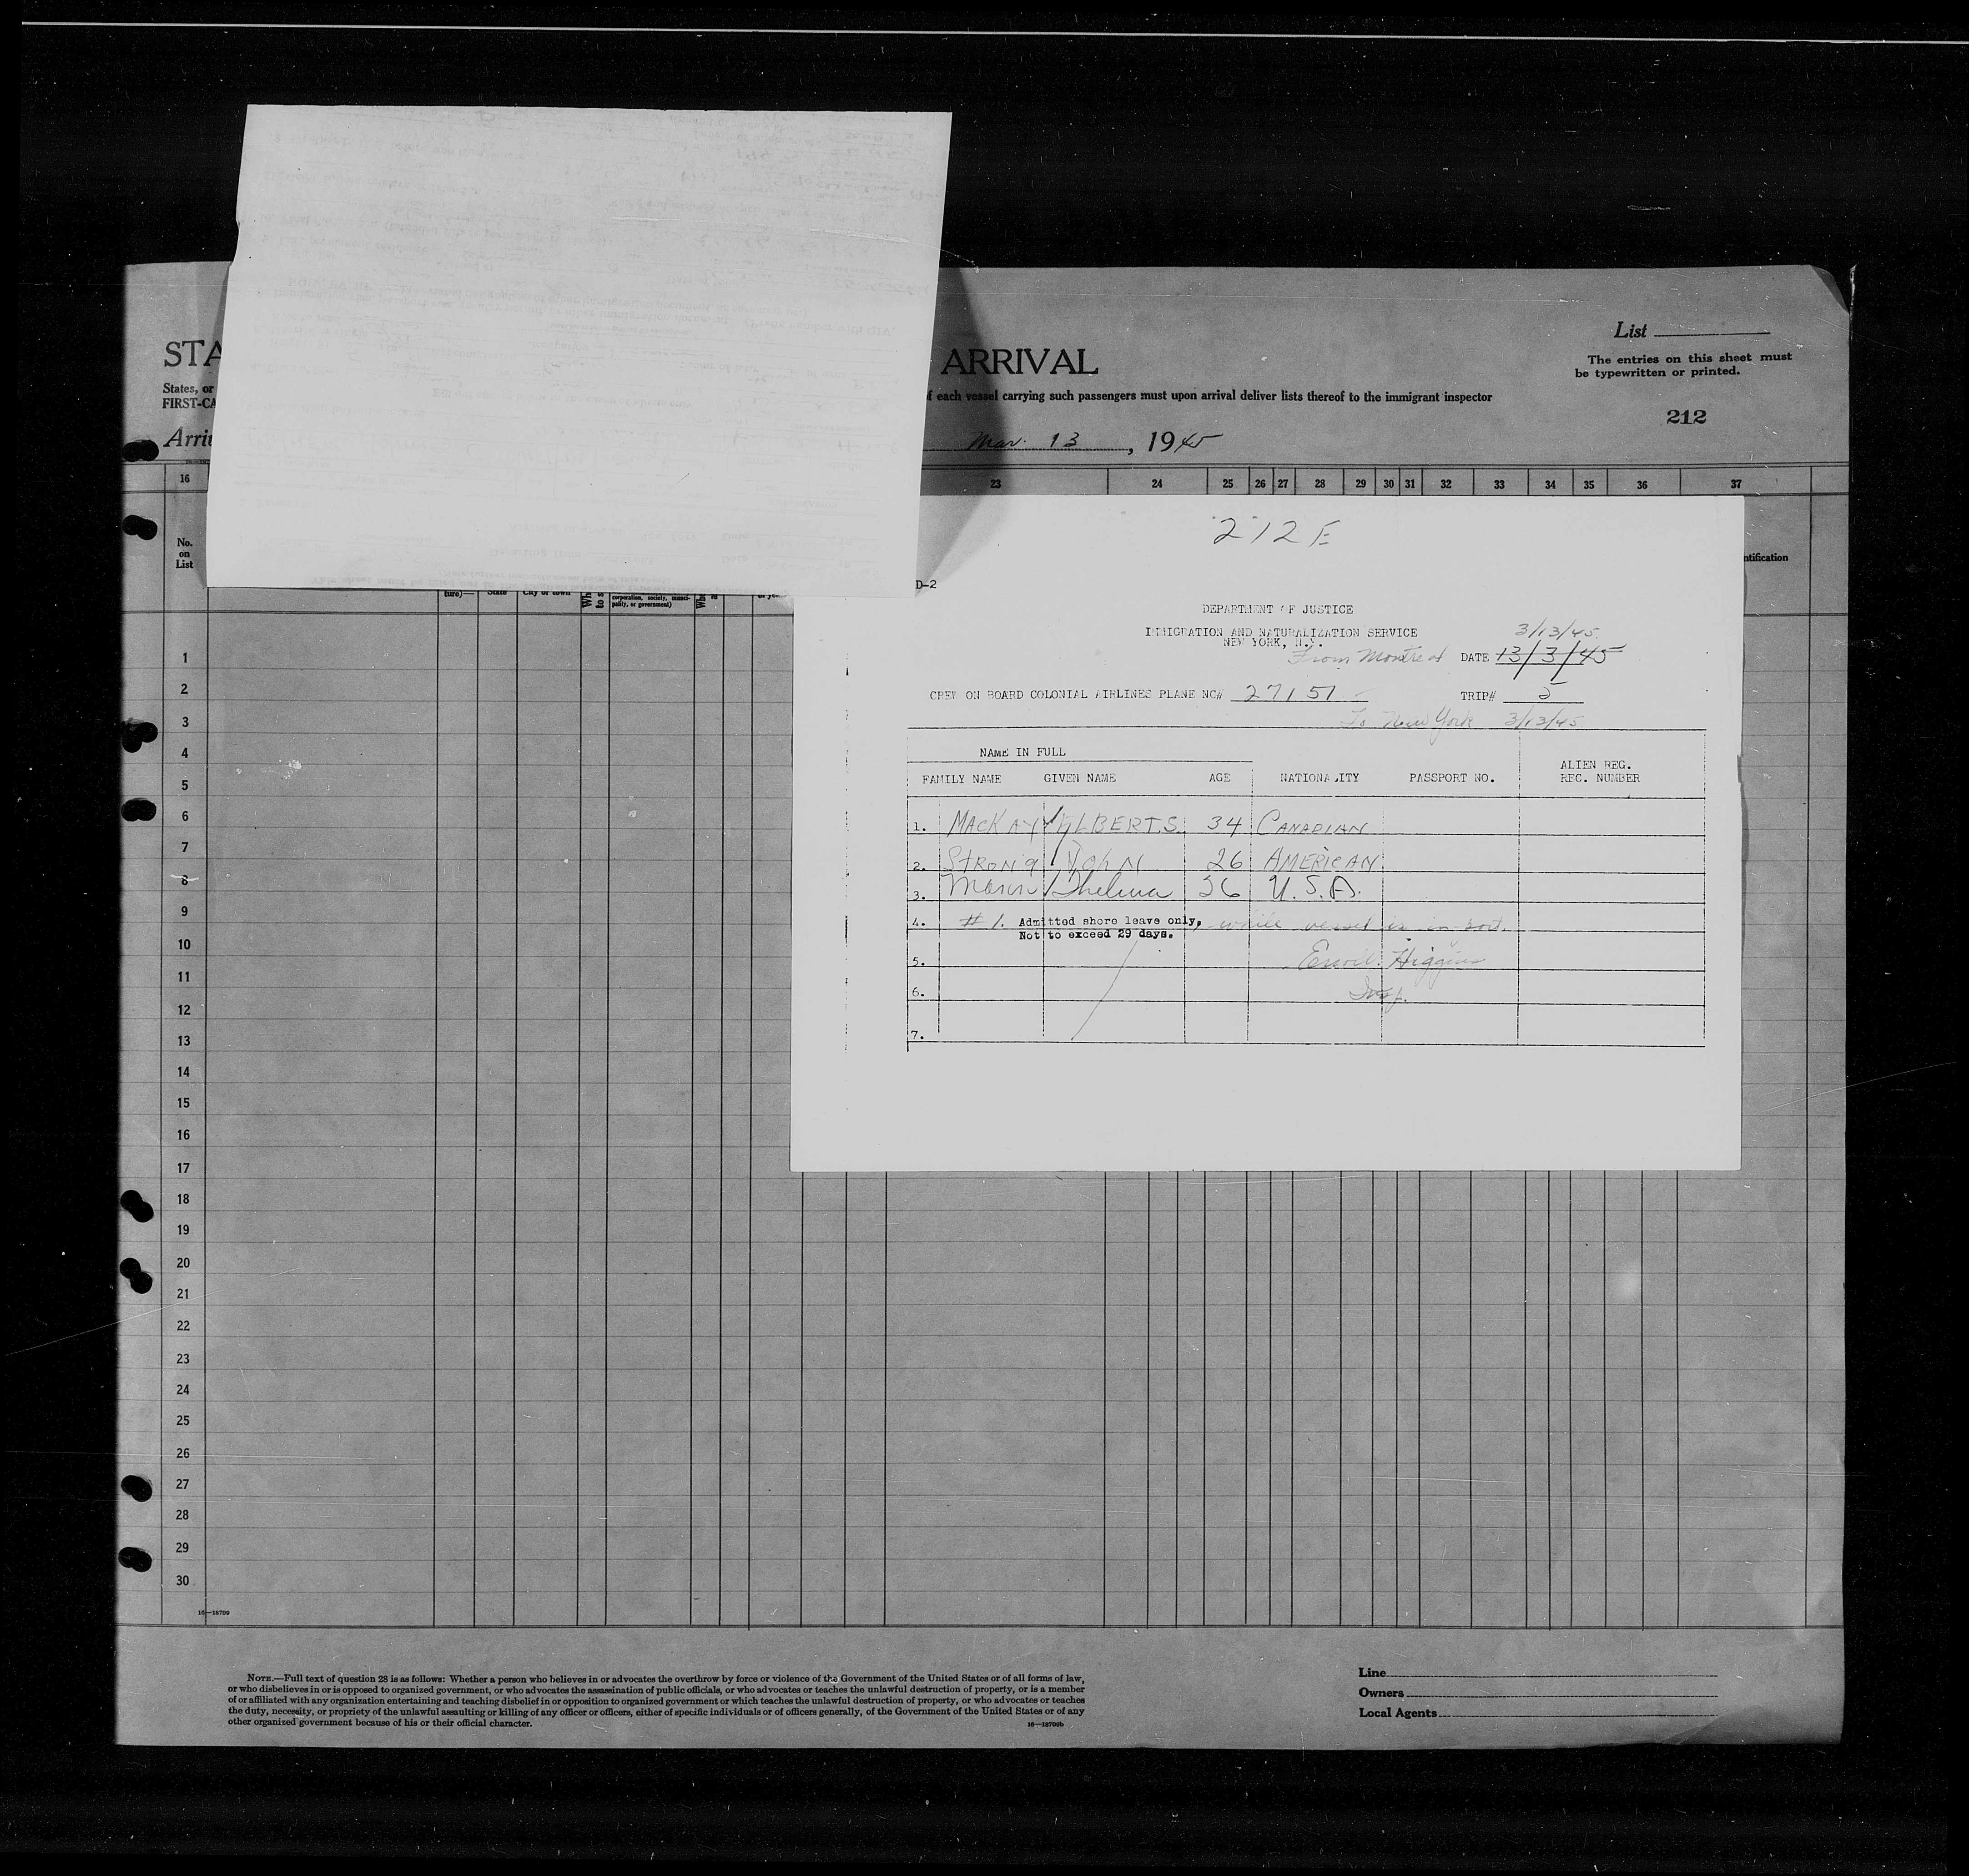 List
STA ARRIVAL
The entries on this sheet must
be typewritten or printed.
States, or
f each vessel carrying such passengers must upon arrival deliver lists thereof to the immigrant inspector
FIRST-CA
212
Arri Mar. 13, 1945
16 23 24 25 26 27 28 29 30 31 32 33 34 35 36 37
No.
on
List
ntification
ture)— State City or town
corporation, society, munici-
pality, or government)
212 E
D-2
DEPARTMENT OF JUSTICE
IMMIGRATION AND NATURALIZATION SERVICE
NEW YORK, N.Y.
3/13/45
From Montreal DATE 13/3/45
CREW ON BOARD COLONIAL AIRLINES PLANE NC# 27151 TRIP# 5
To New York 3/13/45
NAME IN FULL
FAMILY NAME GIVEN NAME AGE NATIONALITY PASSPORT NO. ALIEN REG. REC. NUMBER
1. MACKAY ALBERT.S. 34 CANADIAN
2. STRONG JOHN 26 AMERICAN
3. Mann Thelma 26 U.S.A.
4. #1. Admitted shore leave only, while vessel is in port.
Not to exceed 29 days.
5. Higgins
6. Insp.
7.
1
2
3
4
5
6
7
8
9
10
11
12
13
14
15
16
17
18
19
20
21
22
23
24
25
26
27
28
29
30
16—18709
NOTE.—Full text of question 28 is as follows: Whether a person who believes in or advocates the overthrow by force or violence of the Government of the United States or of all forms of law,
or who disbelieves in or is opposed to organized government, or who advocates the assassination of public officials, or who advocates or teaches the unlawful destruction of property, or is a member
of or affiliated with any organization entertaining and teaching disbelief in or opposition to organized government or which teaches the unlawful destruction of property, or who advocates or teaches
the duty, necessity, or propriety of the unlawful assaulting or killing of any officer or officers, either of specific individuals or of officers generally, of the Government of the United States or of any
other organized government because of his or their official character.
16—18709b
Line
Owners
Local Agents